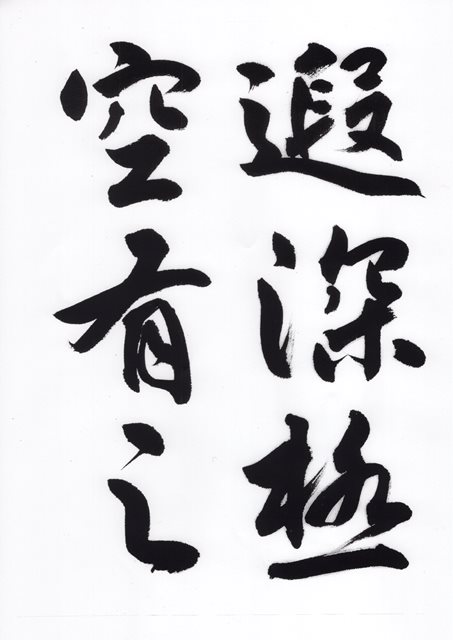 遐深極
空有之